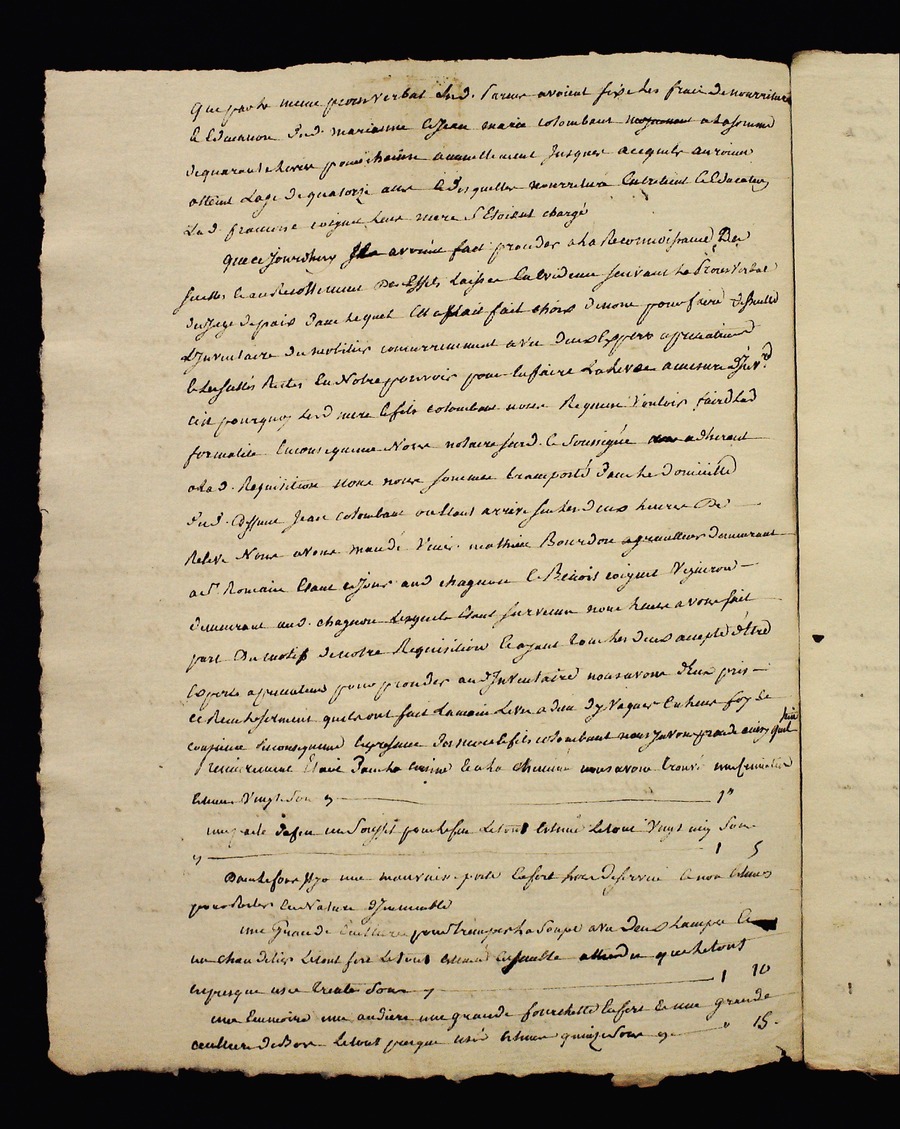 Que par le meme procès verbal led. Sieurs avoient fixé les frais de nourriture
& Education de d. marianne & Jean marie colombant a la somme
de quarante livres pour chacun annuellement Jusques acequils auroient
atteint Lage de quatorze ans & desquelles nourriture Entretient & Education
La d. francoise coignet leur mere s'Etoient chargé
Que cejourdhuy avoient fait proceder a la Reconnoissance Des
Scellés & au Recollement Des Effets Laissés En Evidence suivant le Procès Verbal
du Juge de paix dans lequel Il fait choix de nous pour faire
L'Inventaire du mobilier concurremment avec deux Experts appreciateurs
& les Clefs En Notre pouvoir pour En faire La levée a mesure
c'est pourquoy lesd. mere & fils colombant nous Requierent Vouloir faire Lad
formalité En consequence Nous notaire susd. & soussigné adherant
a la d. Requisition nous nous sommes transporté dans le Domicille
du d. deffunt Jean colombant ou Etant arrivé sur les deux heures De
Relevé Nous avons mandé Venir mathieu Bourdon demeurant
a St. Romain Etant ce Jour aud chagnon & Benoit coignet Vigneron
demeurant aud. chagnon Lesquels Etant survenu nous Leur avons fait
part Du motif de notre Requisition & ayant tous les deux accepté d'Etre
Experts appreciateurs pour proceder aud Inventaire nous avons d'Eux pris
& Reçu le serment quils ont fait La main Levée a dieu d'y Vaquer En leur foy &
conscience En consequence En presence desd mere & fils colombant nous y avons procedé ainsy quil suit
Premierement Etant Dans la cuisine & a la cheminée nous avons trouvé une
Estimée Vingt Sous cy 1"
une paile defeu un Soufflet pour le feu Le tout Estimé Vingt cinq Sous
cy 1 5
Dans le four une mauvaise porte En fer hors de service & non Estimée
pour Rester En Nature d'Immeuble
une Grande Cuilliere pour tremper La Soupe avec deux Lampes &
un chandelier Le tout fer Le tout Estimé Ensemble attendu que le tout
En presque usé trente Sous cy 1 10
une une grande fourchette En fer & une grande
ceuillere de Bois Le tout presque usé Estimé quinze Sous cy " 15